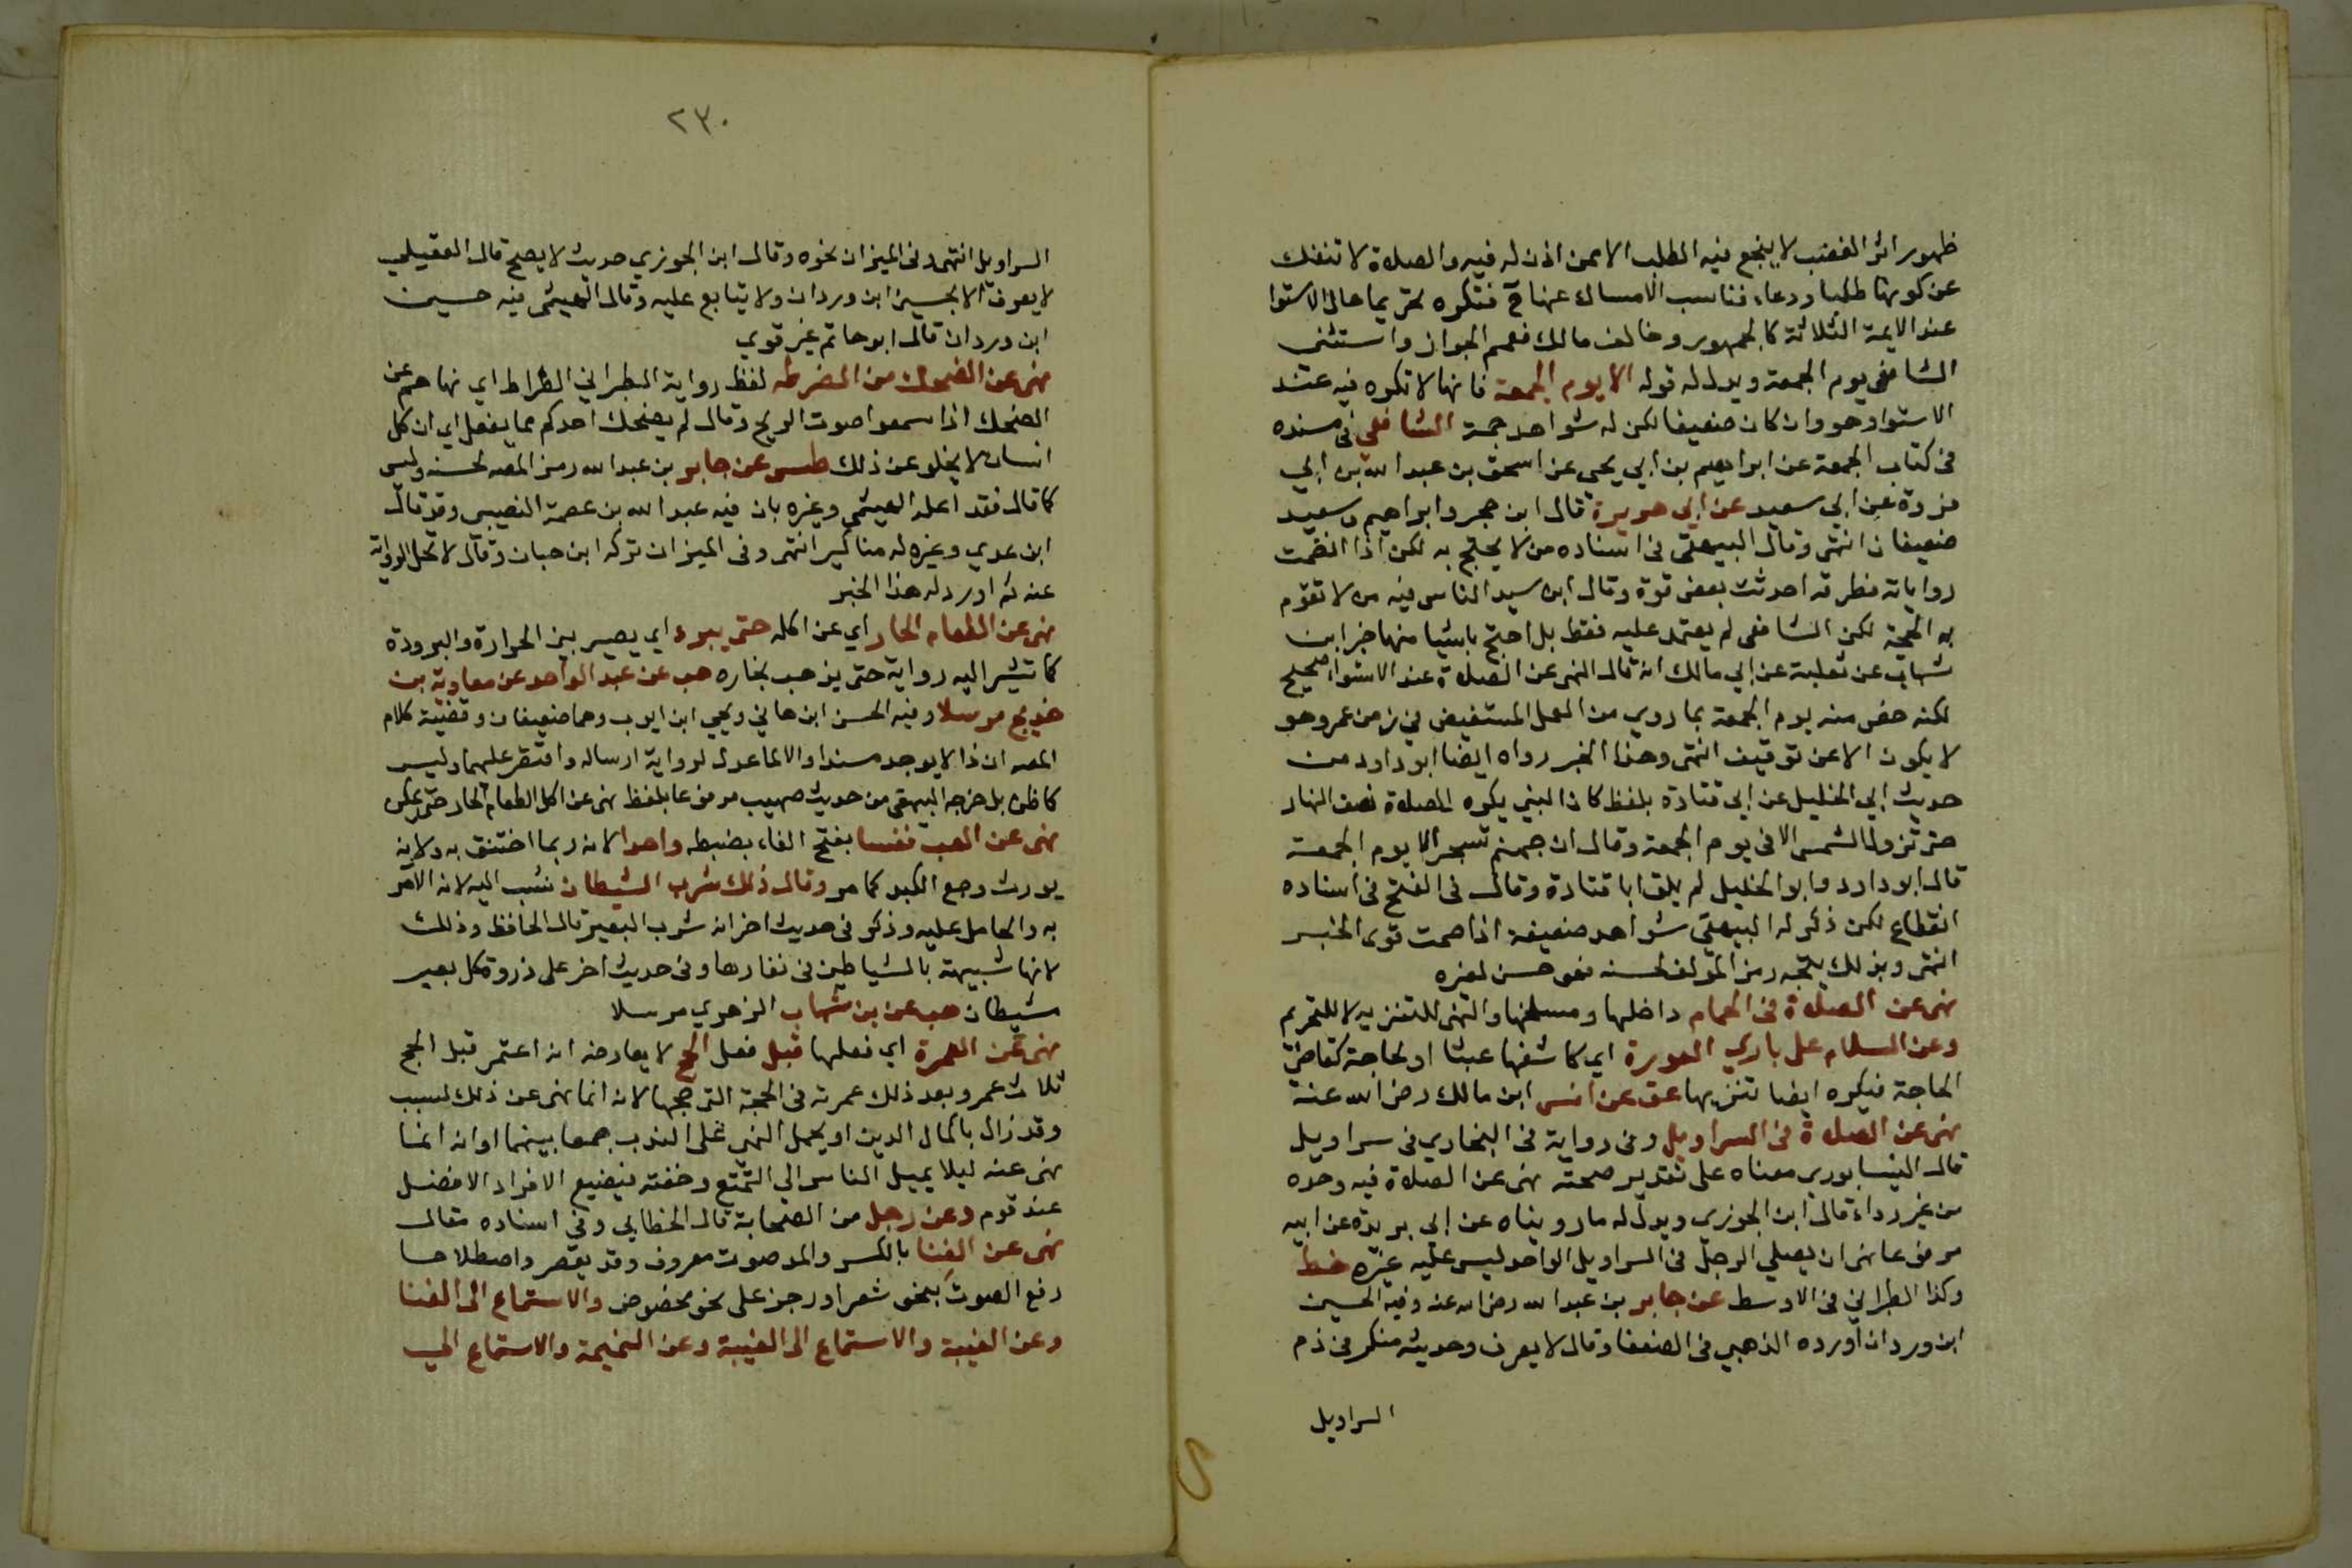 ظهور اثر الغضب لا ينجع فيه الطلب الا ممن اذن له فيه والصلاة لا تنفك
عن كونها طلبا ودعاء فناسب الامساك عنها ح فتكره تحريما حال الاستوا
عند الايمة الثلاثة كالجمهور وخالف مالك فعمم الجواز واستثنى
الشافعي يوم الجمعة ويدل له قوله الا يوم الجمعة فانها لا تكره فيه عند
الاستوا وهو وان كان ضعيفا لكن له شواهد جمة الشافعي في مسنده
في كتاب الجمعة عن ابراهيم بن ابي يحيى عن اسحق بن عبد الله بن ابي
فروة عن ابي سعيد عن ابي هريرة قال ابن حجر وابراهيم وسعيد
ضعيفان انتهى وقال البيهقي في اسناده من لا يحتج به لكن اذا انضمت
رواياته فطرقه احدثت بعض قوة وقال ابن سيد الناس فيه من لا تقوم
به الحجة لكن الشافعي لم يعتمد عليه فقط بل احتج باشيا منها خبر ابن
شهاب عن ثعلبة عن ابي مالك انه قال النهى عن الصلاة عند الاستوا صحيح
لكنه خص منه يوم الجمعة بما روي من العمل المستفيض في زمن عمر وهو
لا يكون الا عن توقيف انتهى وهذا الخبر رواه ايضا ابو داود من
حديث ابي الخليل عن ابي قتادة بلفظ كان النبي يكره الصلاة نصف النهار
حتى تزول الشمس الا في يوم الجمعة وقال ان جهنم تسجر الا يوم الجمعة
قال ابو داود وابو الخليل لم يلق ابا قتادة وقال في الفتح في اسناده
انقطاع لكن ذكر له البيهقي شواهد ضعيفة اذا ضمت قوى الخبر
انتهى وبذلك يتجه رمز المولف لحسنه فهو حسن لغيره
نهى عن الصلاة في الحمام داخلها ومسلخها والنهى للتنزيه لا للتحريم
وعن السلام على بادي العورة اي كاشفها عبثا او لحاجة كقاضي
الحاجة فيكره ايضا تنزيها عق عن انس ابن مالك رضي الله عنه
نهى عن الصلاة في السراويل وفي رواية في البخاري في سراويل
قال النيسابوري معناه على تقدير صحته نهى عن الصلاة فيه وحده
من غير رداء قال ابن الجوزي ويدل له ما رويناه عن ابي بريدة عن ابيه
مرفوعا نهى ان يصلي الرجل في السراويل الواحد ليس عليه غيره خط
وكذا الطبراني في الاوسط عن جابر بن عبد الله رضي الله عنه وفيه الحسين
ابن وردان اورده الذهبي في الضعفا وقال لا يعرف وحديثه منكر في ذم
السراويل
٢٣٠
السراويل انتهى وفي الميزان نحوه وقال ابن الجوزي حديث لا يصح قال العقيلي
لا يعرف الا بحسين ابن وردان ولا يتابع عليه وقال الهيثمي فيه حسين
ابن وردان قال ابو حاتم غير قوي
نهى عن الضحك من الضرطه لفظ رواية الطبراني الضراط اي نهاهم عن
الضحك اذا سمعوا صوت الريح وقال لم يضحك احدكم مما يفعل اي ان كل
انسان لا يخلو عن ذلك طس عن جابر بن عبد الله رمز المصه لحسنه وليس
كما قال فقد اعله الهيثمي وغيره بان فيه عبد الله بن عصمة النصيبي وقد قال
ابن عدي وغيره له مناكير انتهى وفي الميزان تركه ابن حبان وقال لا تحل الرواية
عنه ثم اورد له هذا الخبر
نهى عن الطعام الحار اي عن اكله حتى يبرد اي يصير بين الحرارة والبرودة
كما تشير اليه رواية حتى يذهب بخاره هب عن عبد الواحد عن معاوية بن
خديج مرسلا وفيه الحسن ابن هاني ويحيي ابن ايوب وهما ضعيفان وقضية كلام
المصه ان ذا لا يوجد مسندا والا لما عدل لرواية ارساله واقتصر عليهما وليس
كما ظن بل خرجه البيهقي من حديث صهيب مرفوعا بلفظ نهى عن اكل الطعام الحار حتى يمكن
نهى عن العب نفسا بفتح الفاء بضبطه واحدا لانه ربما اختنق به ولانه
يورث وجع الكبد كما مر وقال ذلك شرب الشيطان نسب اليه لانه الآمر
به والحامل عليه وذكر في حديث اخر انه شرب البعير قال الحافظ وذلك
لانها شبيهة بالشياطين في نفارها وفي حديث اخر على ذروة كل بعير
شيطان هب عن بن شهاب الزهري مرسلا
نهى عن العمرة اي فعلها قبل فعل الحج لا يعارضه انه اعتمر قبل الحج
ثلاث عمر وبعد ذلك عمرته في الحجة التي حجها لانه انما نهى عن ذلك لسبب
وقد زال باكمال الدين او يحمل النهى على الندب جمعا بينهما او انه انما
نهى عنه ليلا يميل الناس الي التمتع وخفته فيضيع الافراد الافضل
عند قوم وعن رجل من الصحابة قال الخطابي وفي اسناده مقال
نهى عن الغنا بالكسر والمد صوت معروف وقد يقصر واصطلاحا
رفع الصوت بنحو شعر او رجز على نحو مخصوص والاستماع الى الغنا
وعن الغيبة والاستماع الى الغيبة وعن النميمة والاستماع الي